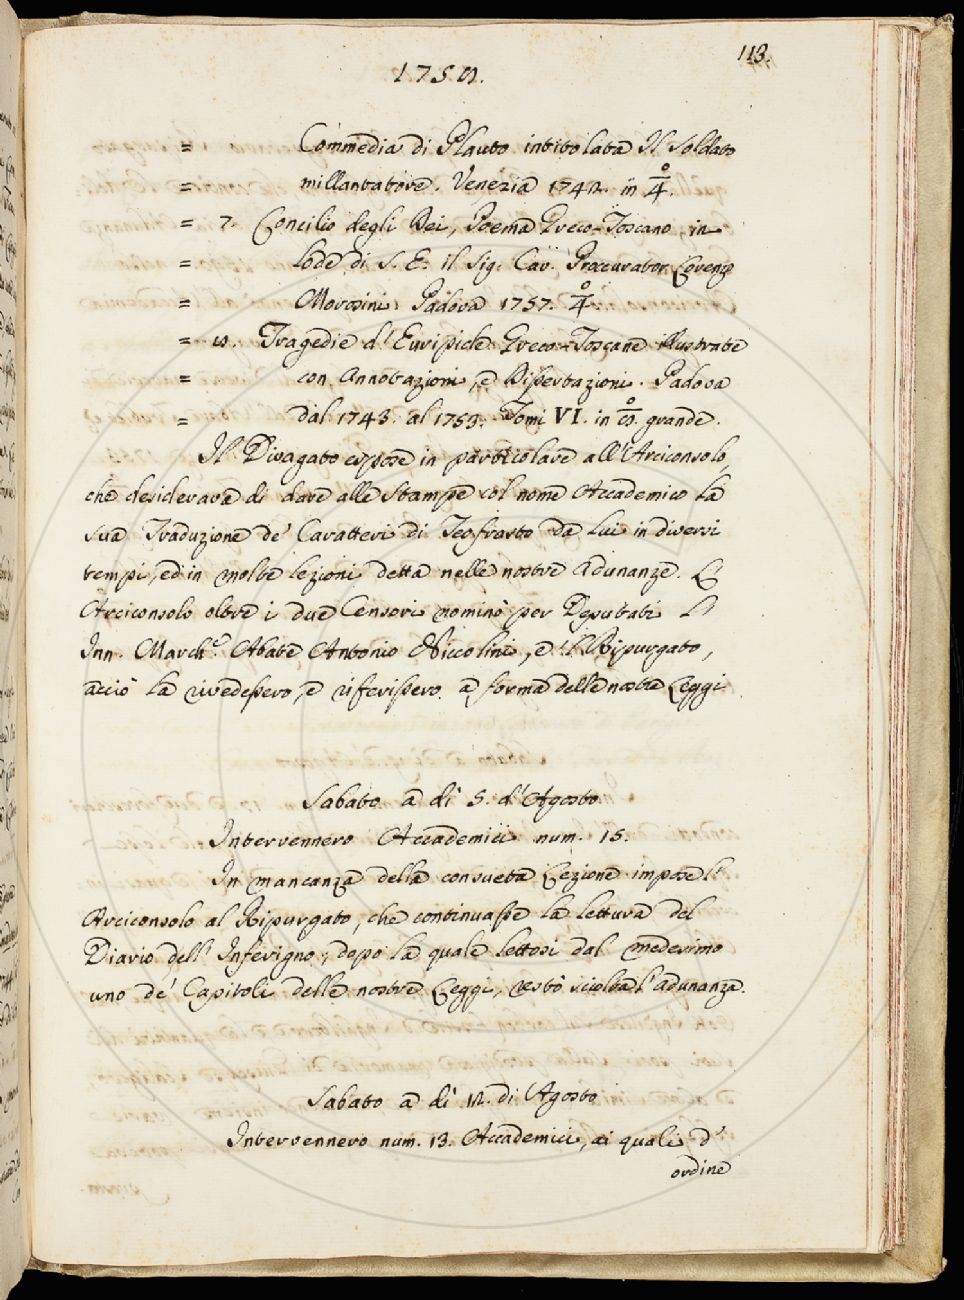 113.
1758.
= Commedia di Plauto intitolata Il Soldato
= millantatore. Venezia 1742. in 4°.
= 7. Concilio degli Dei, Poema Greco-Toscano, in
= lode di S. E. il Sig. Cav. Proccurator Lorenzo
= Morosini. Padova 1757. 4°.
= 8. Tragedie d'Euripide Greco-Toscane illustrate
= con Annotazioni, e Dissertazioni. Padova
= dal 1743. al 1753. Tomi VI. in 8° grande.
Il Divagato espose in particolare all'Arciconsolo,
che desiderava di dare alle Stampe col nome Accademico la
sua Traduzione de' Caratteri di Teofrasto da lui in diversi
tempi, ed in molte lezioni detta nelle nostre Adunanze. L'
Arciconsolo oltre i due Censori nominò per Deputati l'
Inn. March.e Abate Antonio Niccolini, e 'l Ripurgato,
acciò la rivedessero, e riferissero a forma delle nostre Leggi
Sabato a dì 5. d'Agosto
Intervennero Accademici num. 15.
In mancanza della consueta Lezione impose l'
Arciconsolo al Ripurgato, che continuasse la lettura del
Diario dell'Inferigno; dopo la quale lettosi dal medesimo
uno de' Capitoli delle nostre Leggi, restò sciolta l'adunanza.
Sabato a dì 12. di Agosto
Intervennero num. 13. Accademici, ai quali d'
ordine